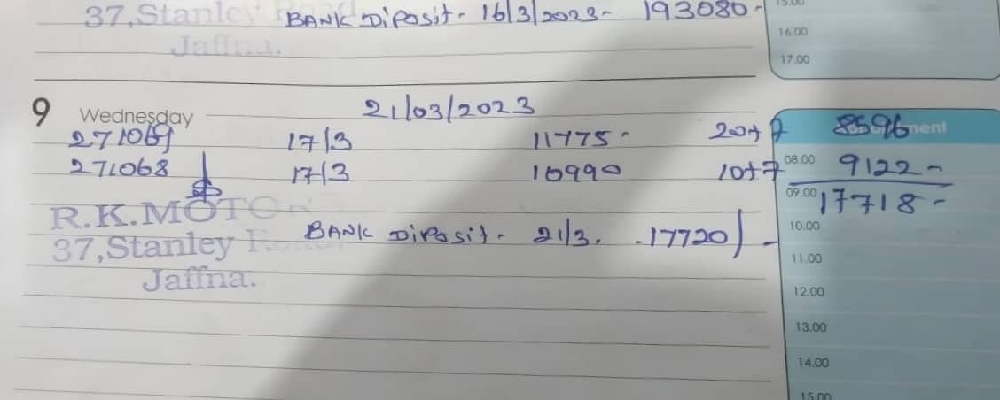 37, Stanley Road BANK Diposit - 16/3/2023 - 193080 -
Jaffna.
15.00
16.00
17.00
9 Wednesday 21/03/2023
271069 17/3 11775 - 20+7 8596
271068 17/3 10990 10+7 08.00 9122 -
09.00 17718 -
R.K.MOTO
37,Stanley BANK Diposit - 21/3. 17720/- 10.00
Jaffna. 11.00
12.00
13.00
14.00
15.00